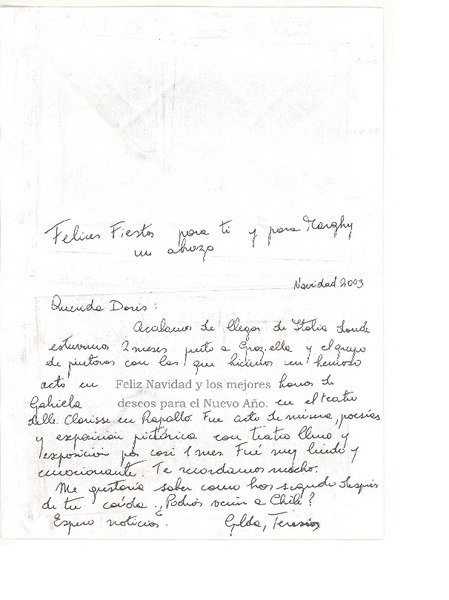 Felices Fiestas para ti y para Marghy
un abrazo
Navidad 2003
Querida Doris:
Acabamos de llegar de Italia donde
estuvimos 2 meses junto a Graziella y el grupo
de pintoras con las que hicimos un hermoso
acto en Feliz Navidad y los mejores honor de
Gabriela deseos para el Nuevo Año. en el teatro
delle Clarisse en Rapallo. Fue acto de música, poesías
y exposición pictórica con teatro lleno y
exposición por casi 1 mes. Fué muy lindo y
emocionante. Te recordamos mucho.
Me gustaría saber como has seguido después
de tu caída ¿Podrías venir a Chile?
Espero noticias. Gilda, Teresias